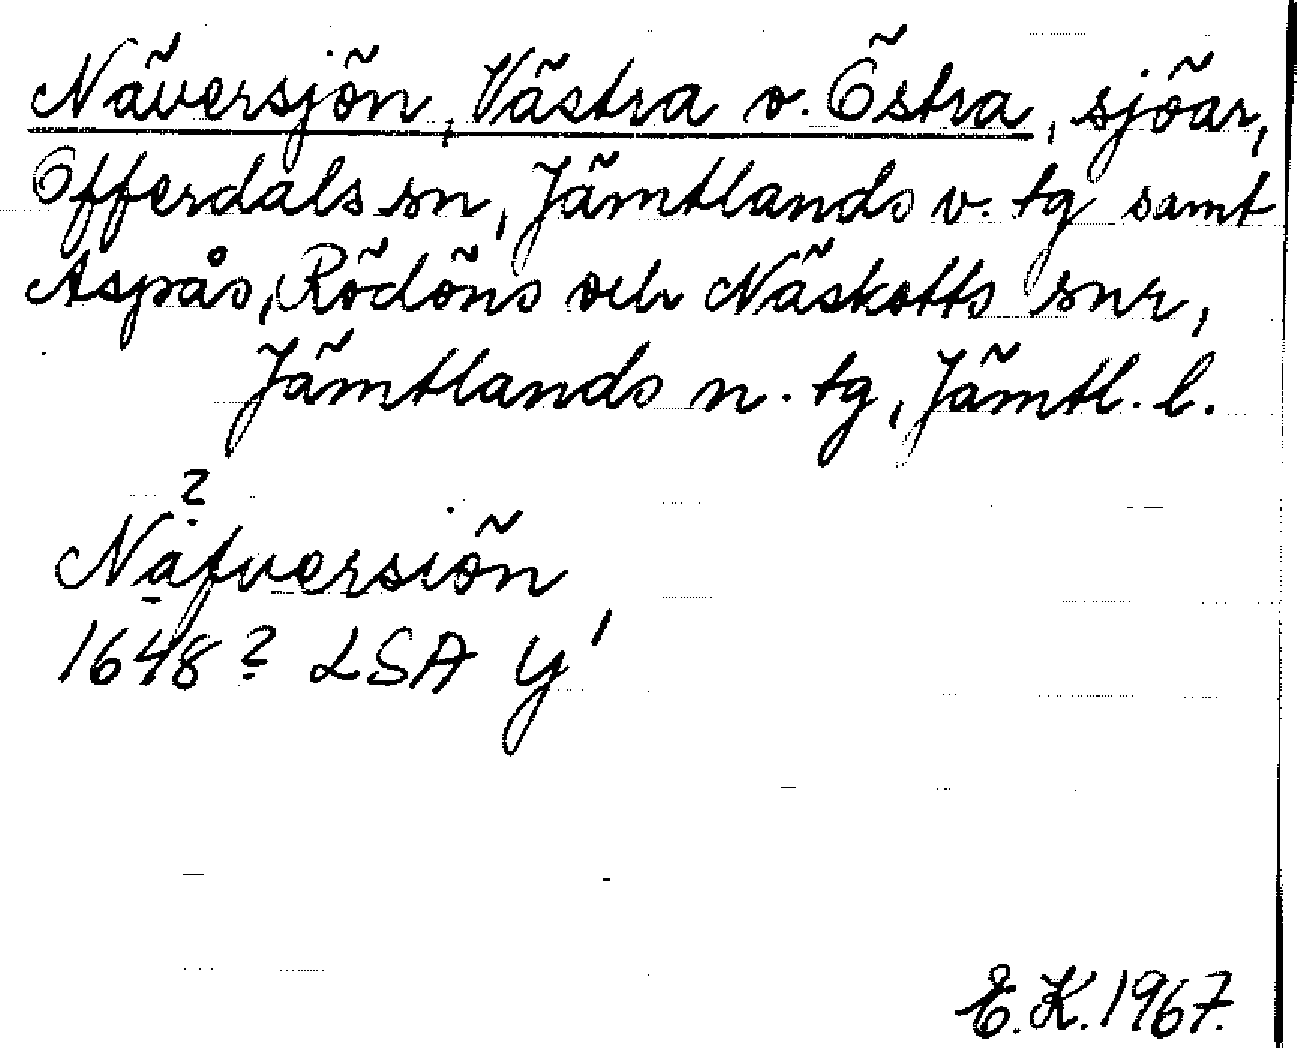 Näversjön, Västra o. Östra, sjöar,
Offerdals sn, Jämtlands v. tg samt
Aspås, Rödöns och Näskotts snr,
Jämtlands n. tg, Jämtl. l.
?
Nafversiön
1648? LSA y'
E.K. 1967.